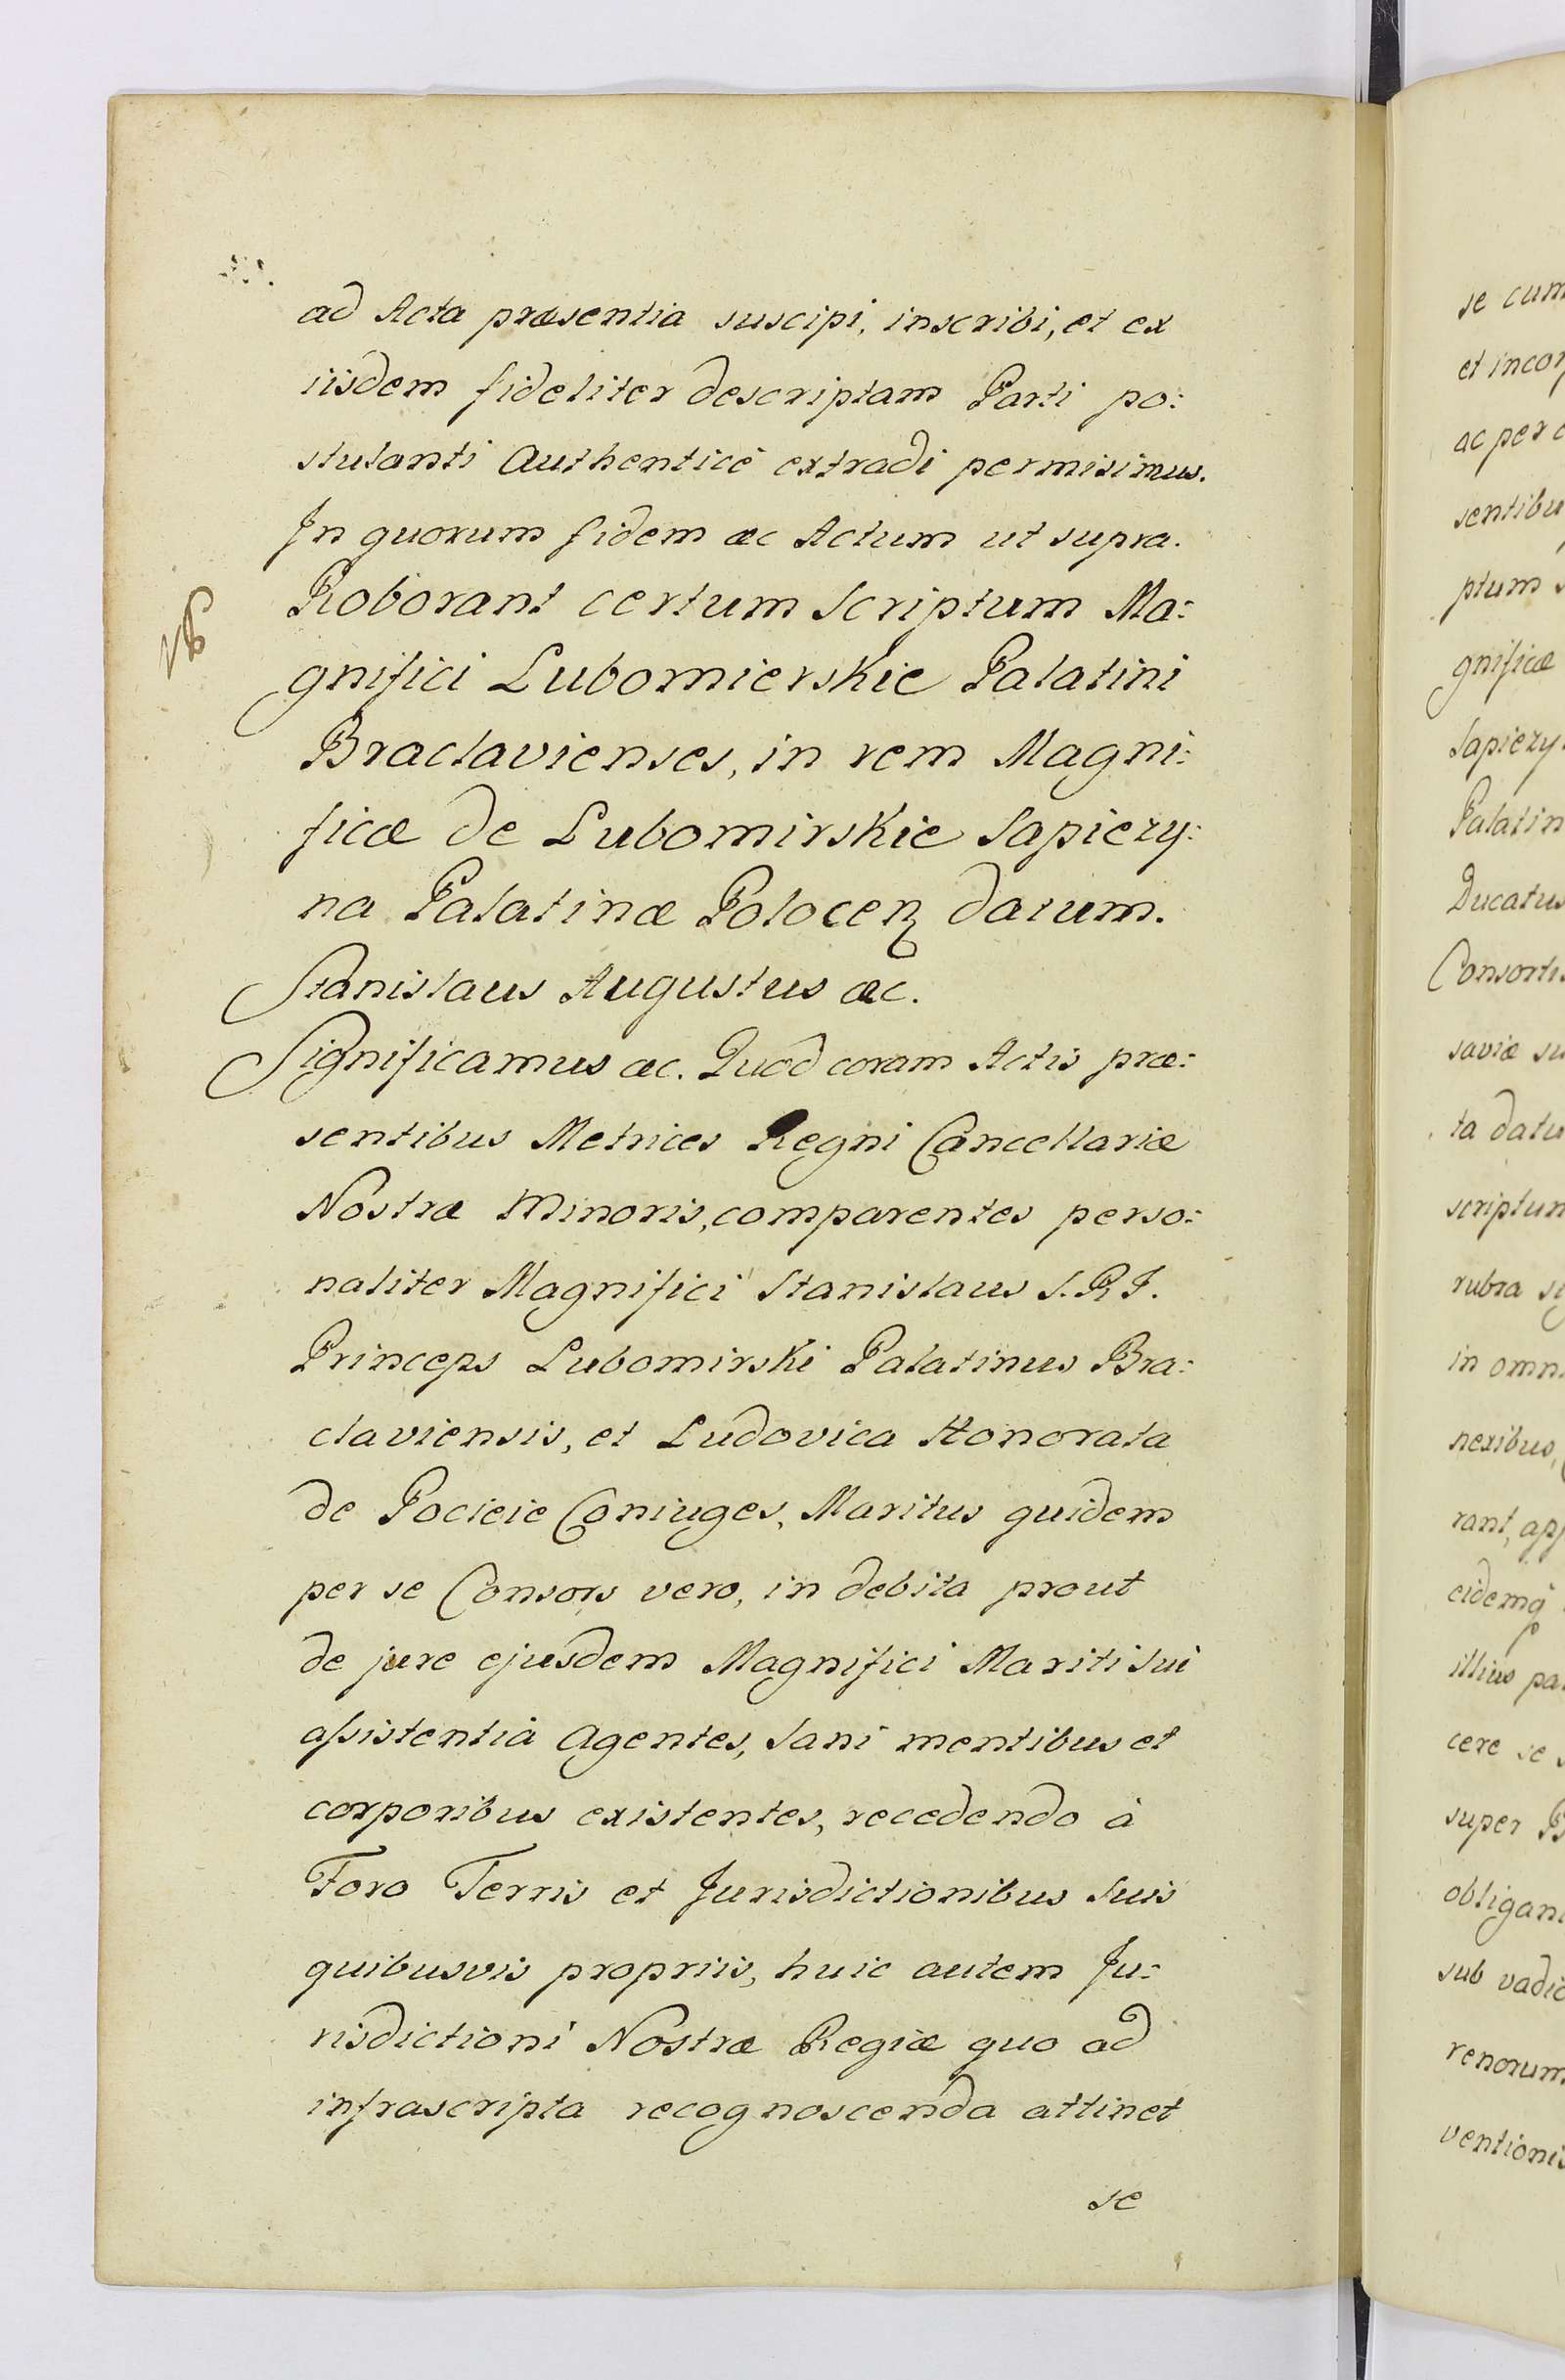 ad Acta præsentia suscipi, inscribi, et ex
iisdem fideliter descriptam Parti po:
stulanti Authenticè extradi permisimus.
In quorum fidem &c Actum ut supra.
Roborant certum Scriptum Ma:
gnifici Lubomierskie Palatini
Braclavienses, in rem Magni:
ficæ de Lubomirskie Sapiezy:
na Palatinæ Polocen datum.
Stanislaus Augustus &c.
Significamus &c. Quod coram Actis præ:
sentibus Metrices Regni Cancellariæ
Nostræ Minoris, comparentes perso:
naliter Magnifici Stanislaus S.R.I.
Princeps Lubomirski Palatinus Bra:
claviensis, et Ludovica Honorata
de Pocieie Coniuges, Maritus quidem
per se Consors vero, in debita prout
de jure ejusdem Magnifici Mariti Sui
assistentia Agentes, Sani mentibus et
corporibus existentes, recedendo à
Foro Terris et Jurisdictionibus Suis
quibusvis propriis, huic autem Ju:
risdictioni Nostræ Regiæ quo ad
infrascripta recognoscenda attinet
se
se cum
et incor
ac per
sentibu
ptum
gnificæ
Sapiezy
Palatin
Ducatus
Consortis
saviæ su
ta datu
scriptum
rubra si
in omn
nexibus,
rant, app
eidemq
illius pa
cere se
super B
obligan
sub vadio
renorum
ventionis